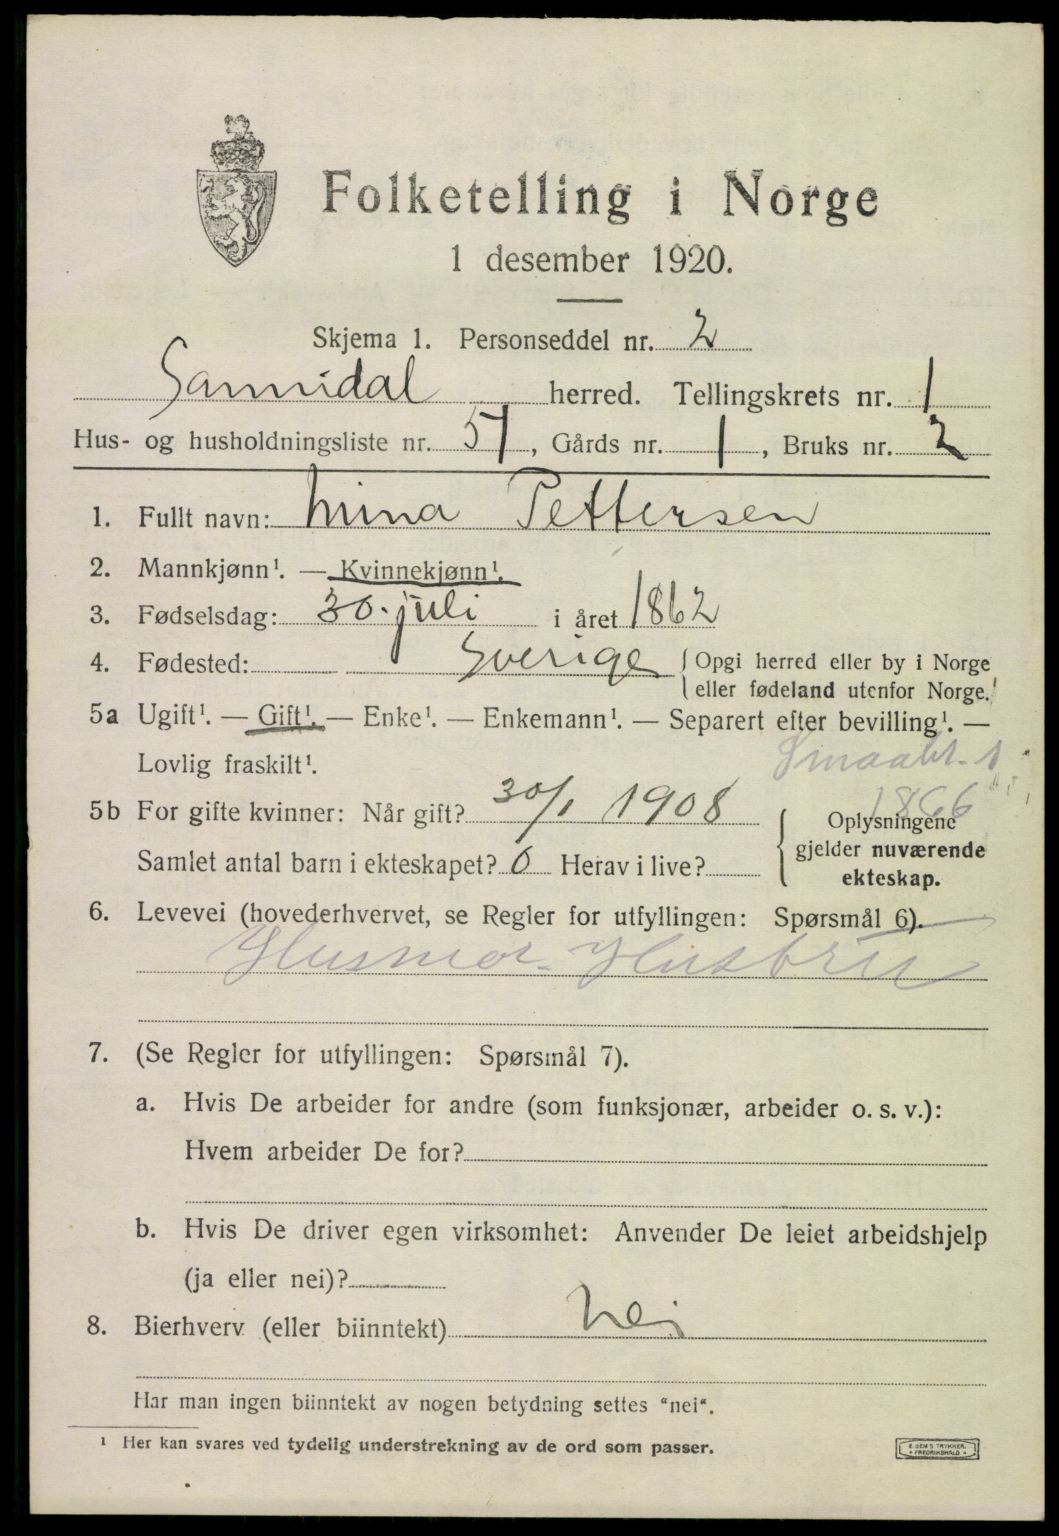 Folketelling i Norge
1 desember 1920.
Skjema 1. Personseddel nr. 2
Sannidal herred. Tellingskrets nr. 1
Hus- og husholdningsliste nr. 51, Gårds nr. 1, Bruks nr. 2
1. Fullt navn: Mina Pettersen
2. Mannkjønn¹. — Kvinnekjønn¹.
3. Fødselsdag: 30. juli i året 1862
4. Fødested: Sverige {Opgi herred eller by i Norge
eller fødeland utenfor Norge.
5a Ugift¹. — Gift¹. — Enke¹. — Enkemann¹. — Separert efter bevilling¹. —
Lovlig fraskilt¹.
1866
5b For gifte kvinner: Når gift? 30/1 1908 Oplysningene
gjelder nuværende
Samlet antal barn i ekteskapet? 0 Herav i live?
ekteskap.
6. Levevei (hovederhvervet, se Regler for utfyllingen: Spørsmål 6).
Husmor. Hustru
7. (Se Regler for utfyllingen: Spørsmål 7).
a. Hvis De arbeider for andre (som funksjonær, arbeider o. s. v.):
Hvem arbeider De for?
b. Hvis De driver egen virksomhet: Anvender De leiet arbeidshjelp
(ja eller nei)?
8. Bierhverv (eller biinntekt) Nei
Har man ingen biinntekt av nogen betydning settes "nei".
¹ Her kan svares ved tydelig understrekning av de ord som passer.
E. SEM'S TRYKKERI
FREDRIKSHALD